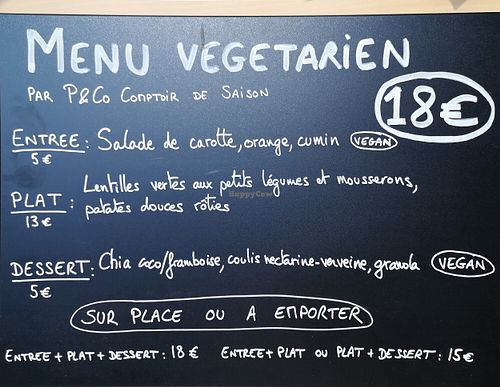 MENU VEGETARIEN
PAR P&CO COMPTOIR DE SAISON
18€
ENTREE : Salade de carotte, orange, cumin VEGAN
5€
Lentilles vertes aux petits légumes et mousserons,
PLAT : patates douces rôties
13€
DESSERT : Chia coco/framboise, coulis nectarine-verveine, granola VEGAN
5€
SUR PLACE OU A EMPORTER
ENTREE + PLAT + DESSERT : 18€ ENTREE + PLAT OU PLAT + DESSERT : 15€
HappyCow